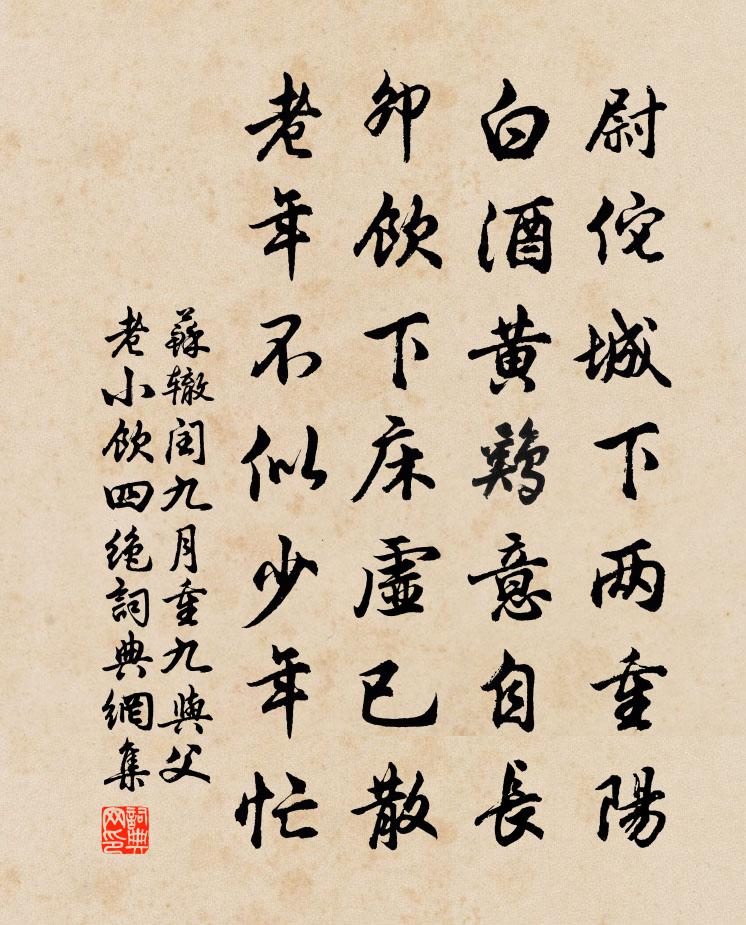 尉佗城下两重陽
白酒黄鷄意自長
卯飲下床虚已散
老年不似少年忙
蘇辙闰九月重九與父
老小飲四绝詞典網集
詞典网印